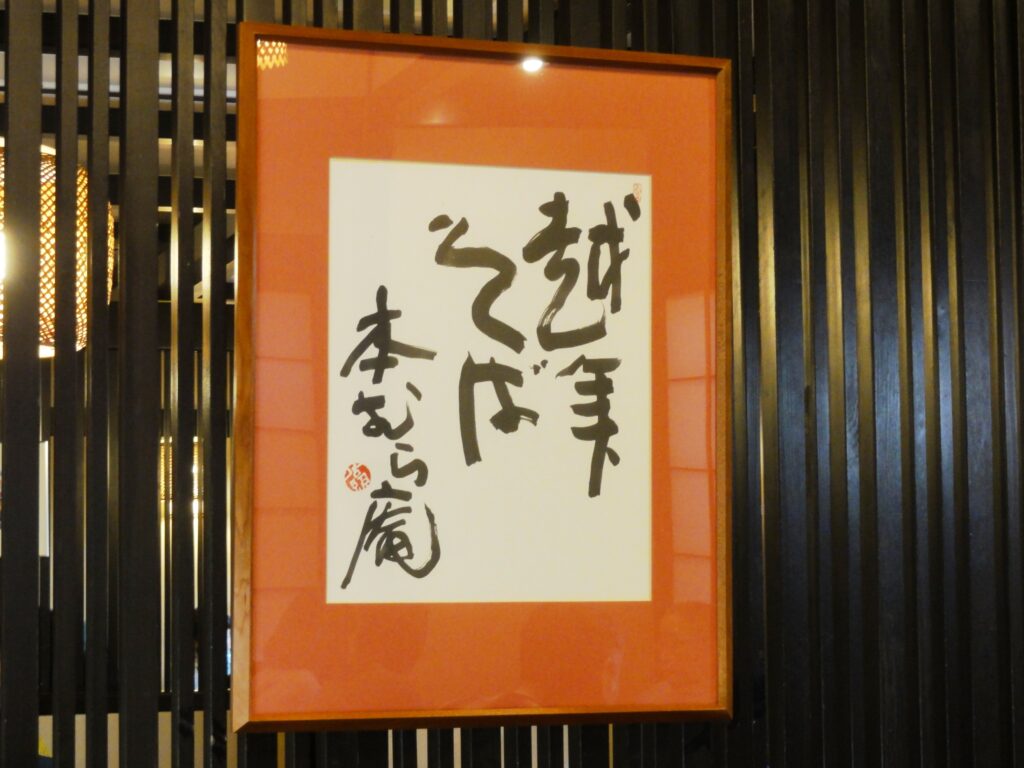 越年
そば
本むら庵